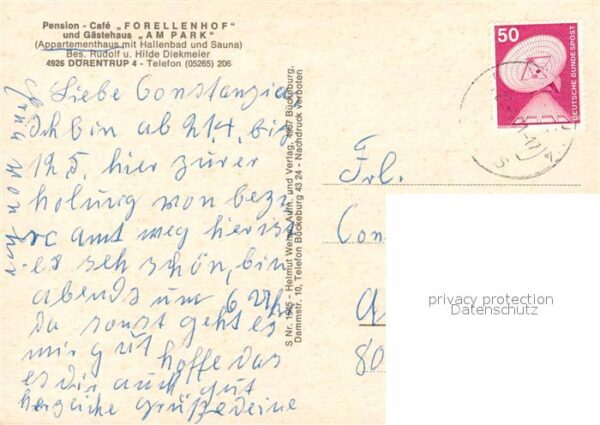 Pension - Café „FORELLENHOF"
und Gästehaus „AM PARK"
(Appartementhaus mit Hallenbad und Sauna)
Bes. Rudolf u. Hilde Diekmeier
4926 DÖRENTRUP 4 - Telefon (05265) 206
Liebe Constanzia,
Ich bin ab 21.4. bis
12.5. hier zur er
holung von bezi
amt weg hier is
es seh schön, bin
abends um 6 Uhr
da sonst geht es
mir gut hoffe das
es dir auch gut
herzliche Grüße deine
S Nr. 1505 - Helmut Weber, Aufn. und Verlag, 4967 Bückeburg,
Dammstr. 10, Telefon Bückeburg 43 24 - Nachdruck verboten
50
DEUTSCHE BUNDESPOST
Frl.
Con
80
privacy protection
Datenschutz